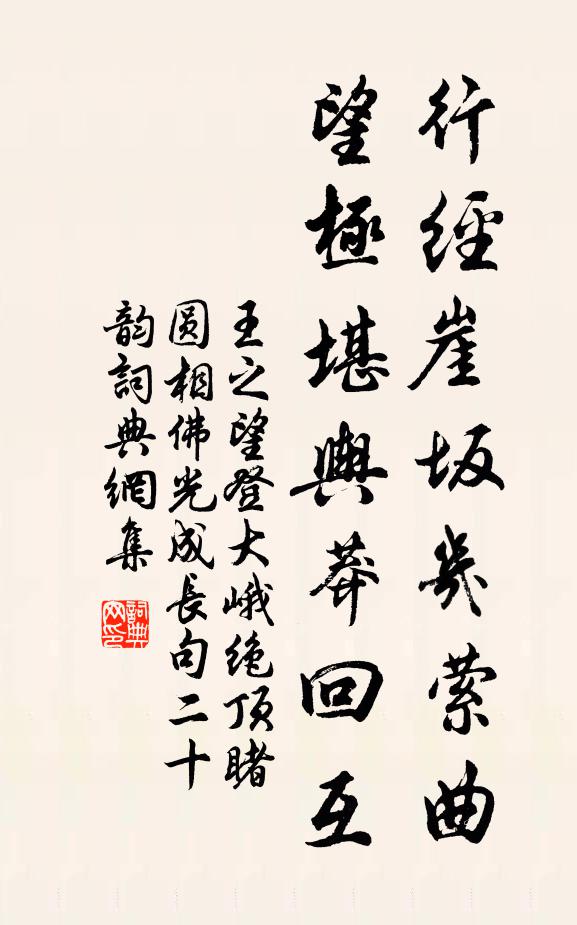 行經崖坂幾萦曲
望極堪輿莽回互
王之望登大峨绝顶睹
圆相佛光成長句二十
韵詞典網集
詞典网印